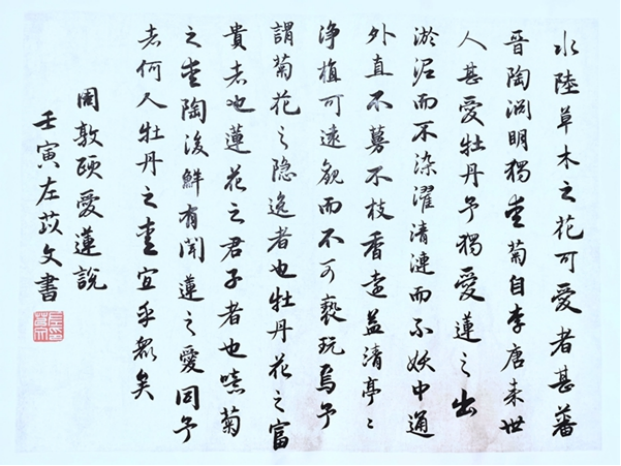 水陸草木之花可愛者甚蕃
晉陶淵明獨愛菊自李唐来世
人甚愛牡丹予獨愛蓮之出
淤泥而不染濯清漣而不妖中通
外直不蔓不枝香遠益清亭〻
浄植可遠觀而不可褻玩焉予
謂菊花之隐逸者也牡丹花之富
貴者也蓮花之君子者也噫菊
之愛陶後鮮有聞蓮之愛同予
者何人牡丹之愛宜乎衆矣
周敦頤愛蓮說
壬寅左苡文書